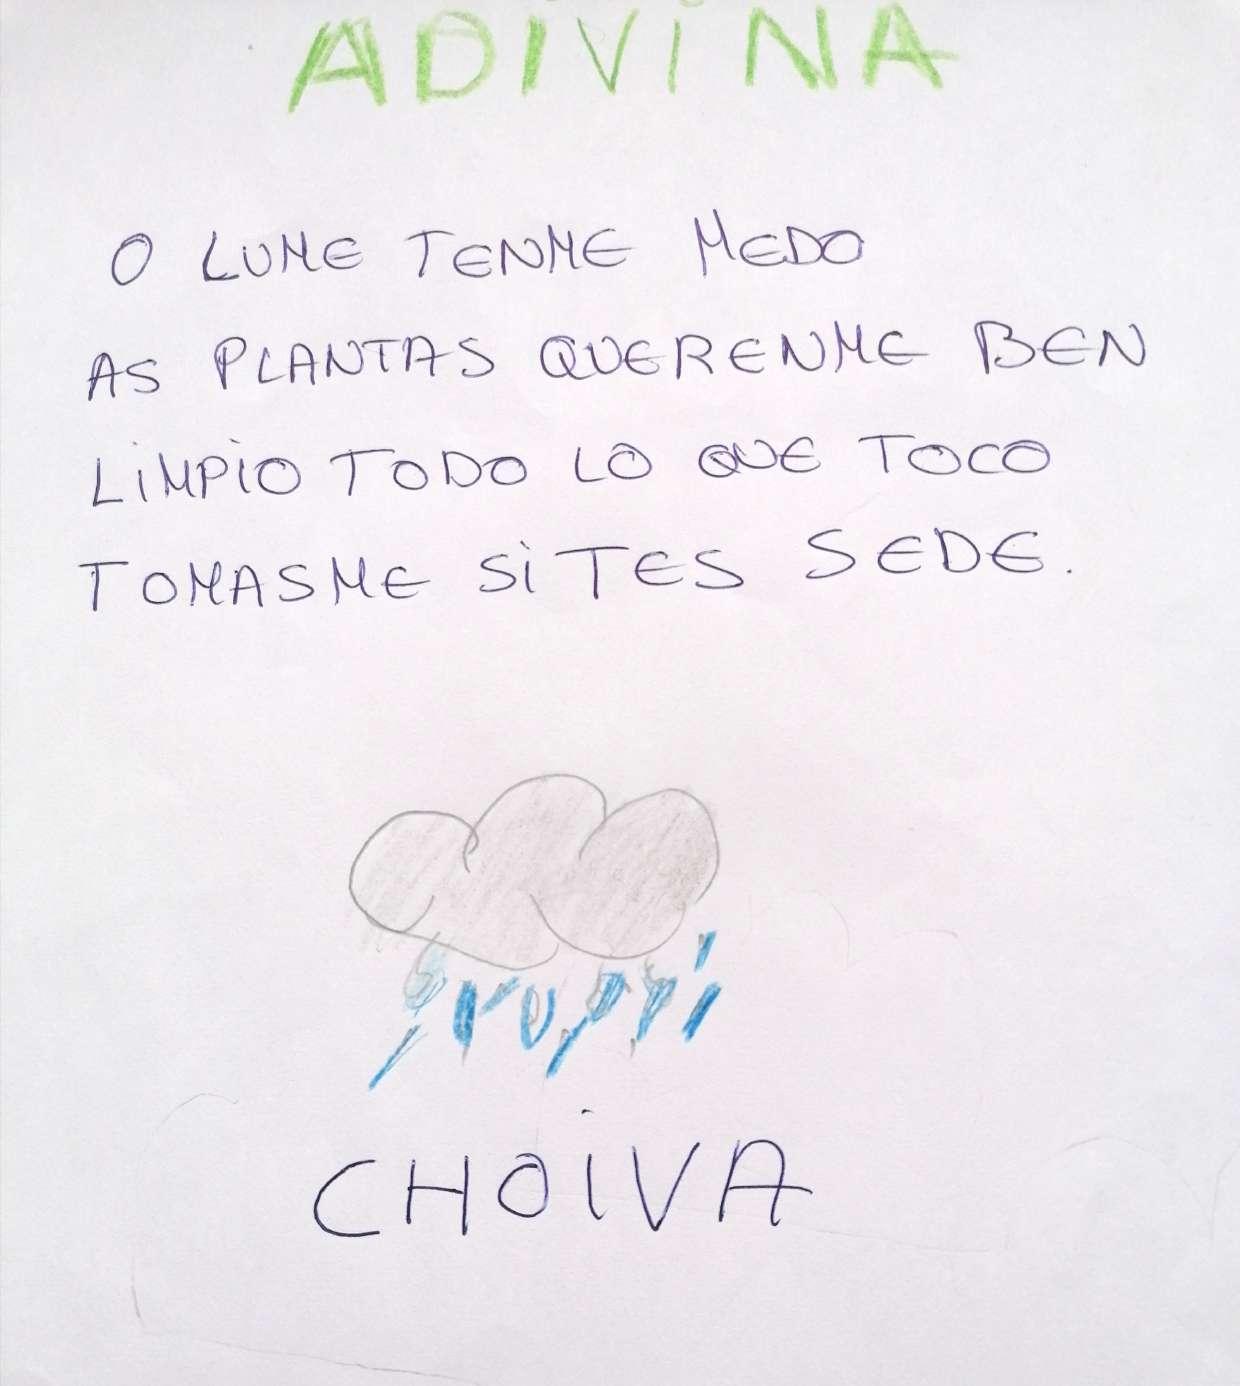 ADIVINA
O LUME TENME MEDO
AS PLANTAS QUERENME BEN
LIMPIO TODO LO QUE TOCO
TOMASME SI TES SEDE.
CHOIVA